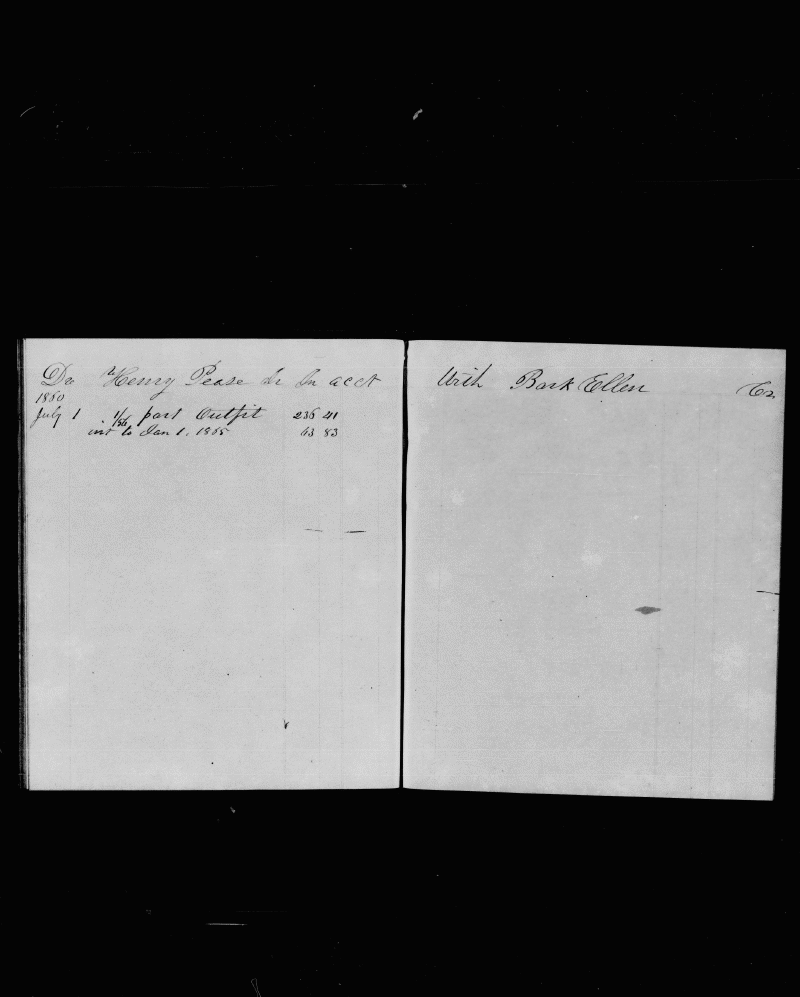 Dr Henry Pease Jr In acct
1860
July 1 1/56 part Outfit 236 41
int to Jan 1, 1865 63 83
With Bark Ellen Cr